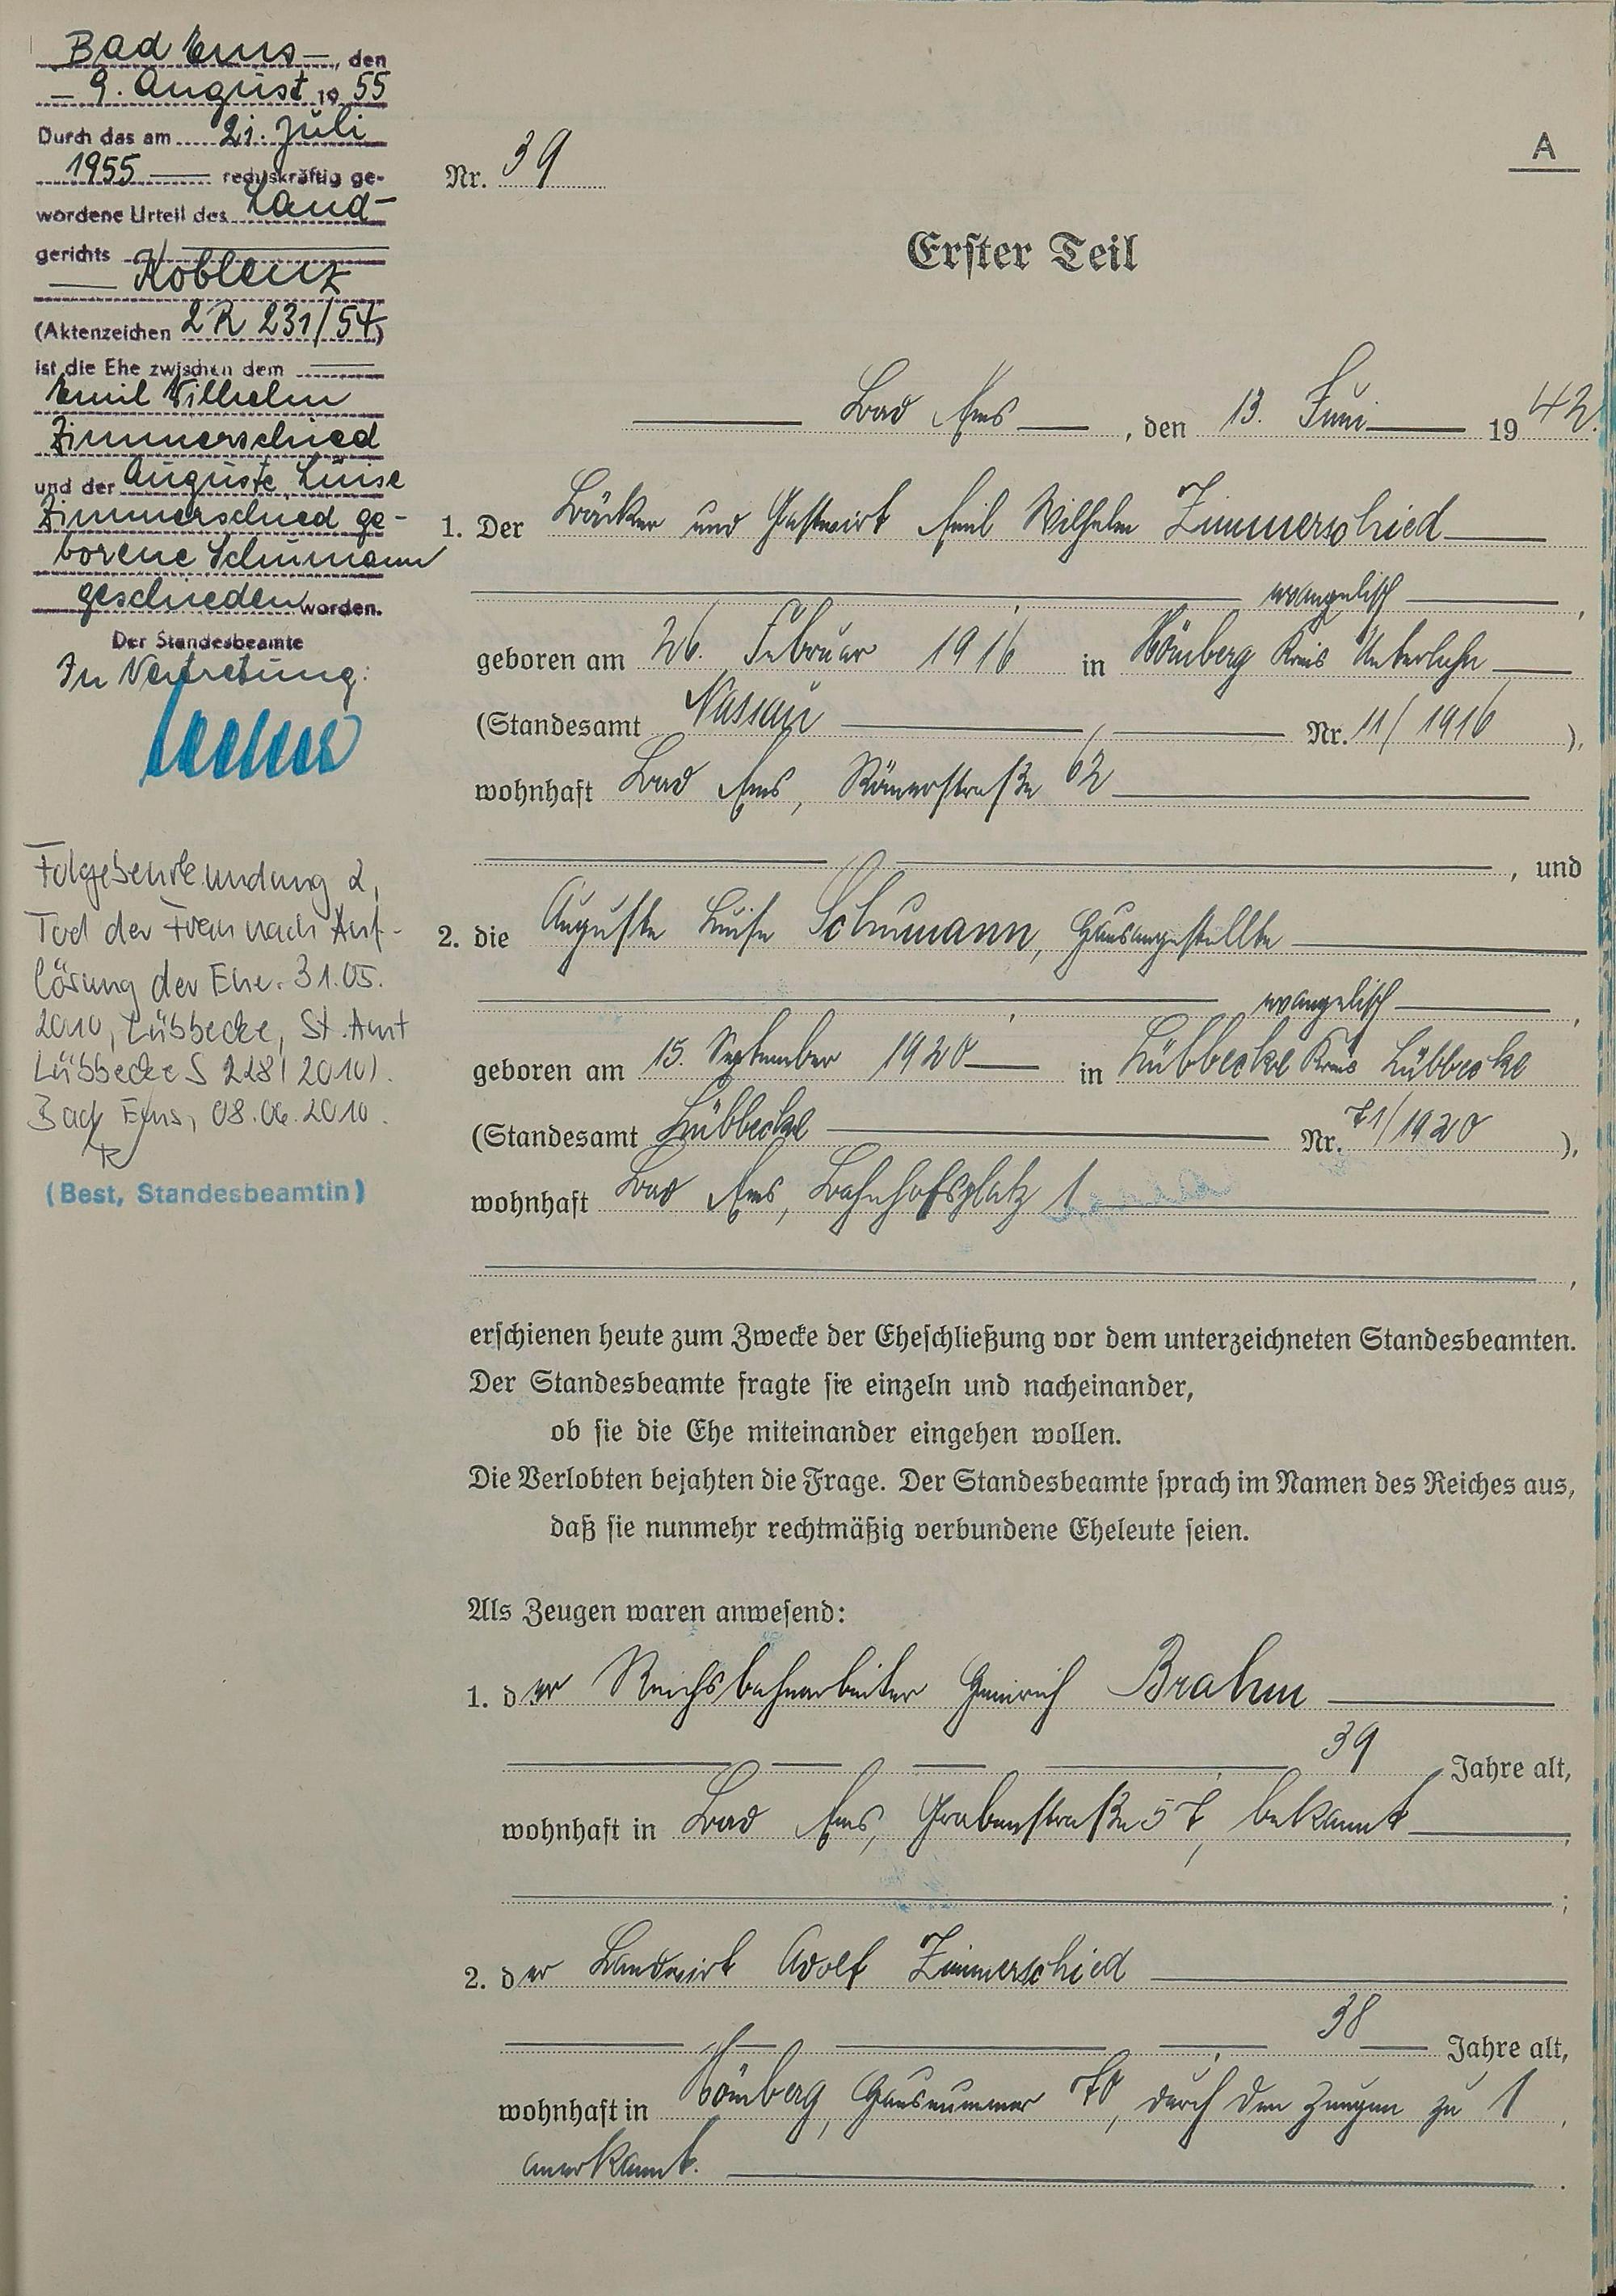 Bad Ems, den
9. August 1955
Durch das am 21. Juli
1955 rechtskräftig ge-
wordene Urteil des Land-
gerichts
Koblenz
(Aktenzeichen 2 R 231/54)
ist die Ehe zwischen dem
Emil Wilhelm
Zimmerschied
und der Auguste Luise
Zimmerschied ge-
borene Schumann
geschieden worden.
Der Standesbeamte
In Vertretung:
Folgebeurkundung 2,
Tod der Frau nach Auf-
lösung der Ehe. 31.05.
2010, Lübbecke, St. Amt
Lübbecke S 228/2010).
Bad Ems, 08.06.2010.
(Best, Standesbeamtin)
A
Nr. 39
Erster Teil
Bad Ems, den 13. Juni 1942.
1. Der Bäcker und Gastwirt Emil Wilhelm Zimmerschied
evangelisch,
geboren am 26. Februar 1916 in Hömberg Kreis Unterlahn
(Standesamt Nassau Nr. 11/1916),
wohnhaft Bad Ems, Römerstraße 62
, und
2. die Auguste Luise Schumann, Hausangestellte
evangelisch,
geboren am 15. September 1920 in Lübbecke Kreis Lübbecke
(Standesamt Lübbecke Nr. 71/1920),
wohnhaft Bad Ems, Bahnhofsplatz 1
,
erschienen heute zum Zwecke der Eheschließung vor dem unterzeichneten Standesbeamten.
Der Standesbeamte fragte sie einzeln und nacheinander,
ob sie die Ehe miteinander eingehen wollen.
Die Verlobten bejahten die Frage. Der Standesbeamte sprach im Namen des Reiches aus,
daß sie nunmehr rechtmäßig verbundene Eheleute seien.
Als Zeugen waren anwesend:
1. der Reichsbahnarbeiter Heinrich Brahm
39 Jahre alt,
wohnhaft in Bad Ems, Grabenstraße 57, bekannt
;
2. der Landwirt Adolf Zimmerschied
38 Jahre alt,
wohnhaft in Hömberg, Hausnummer 70, durch den Zeugen zu 1
anerkannt.